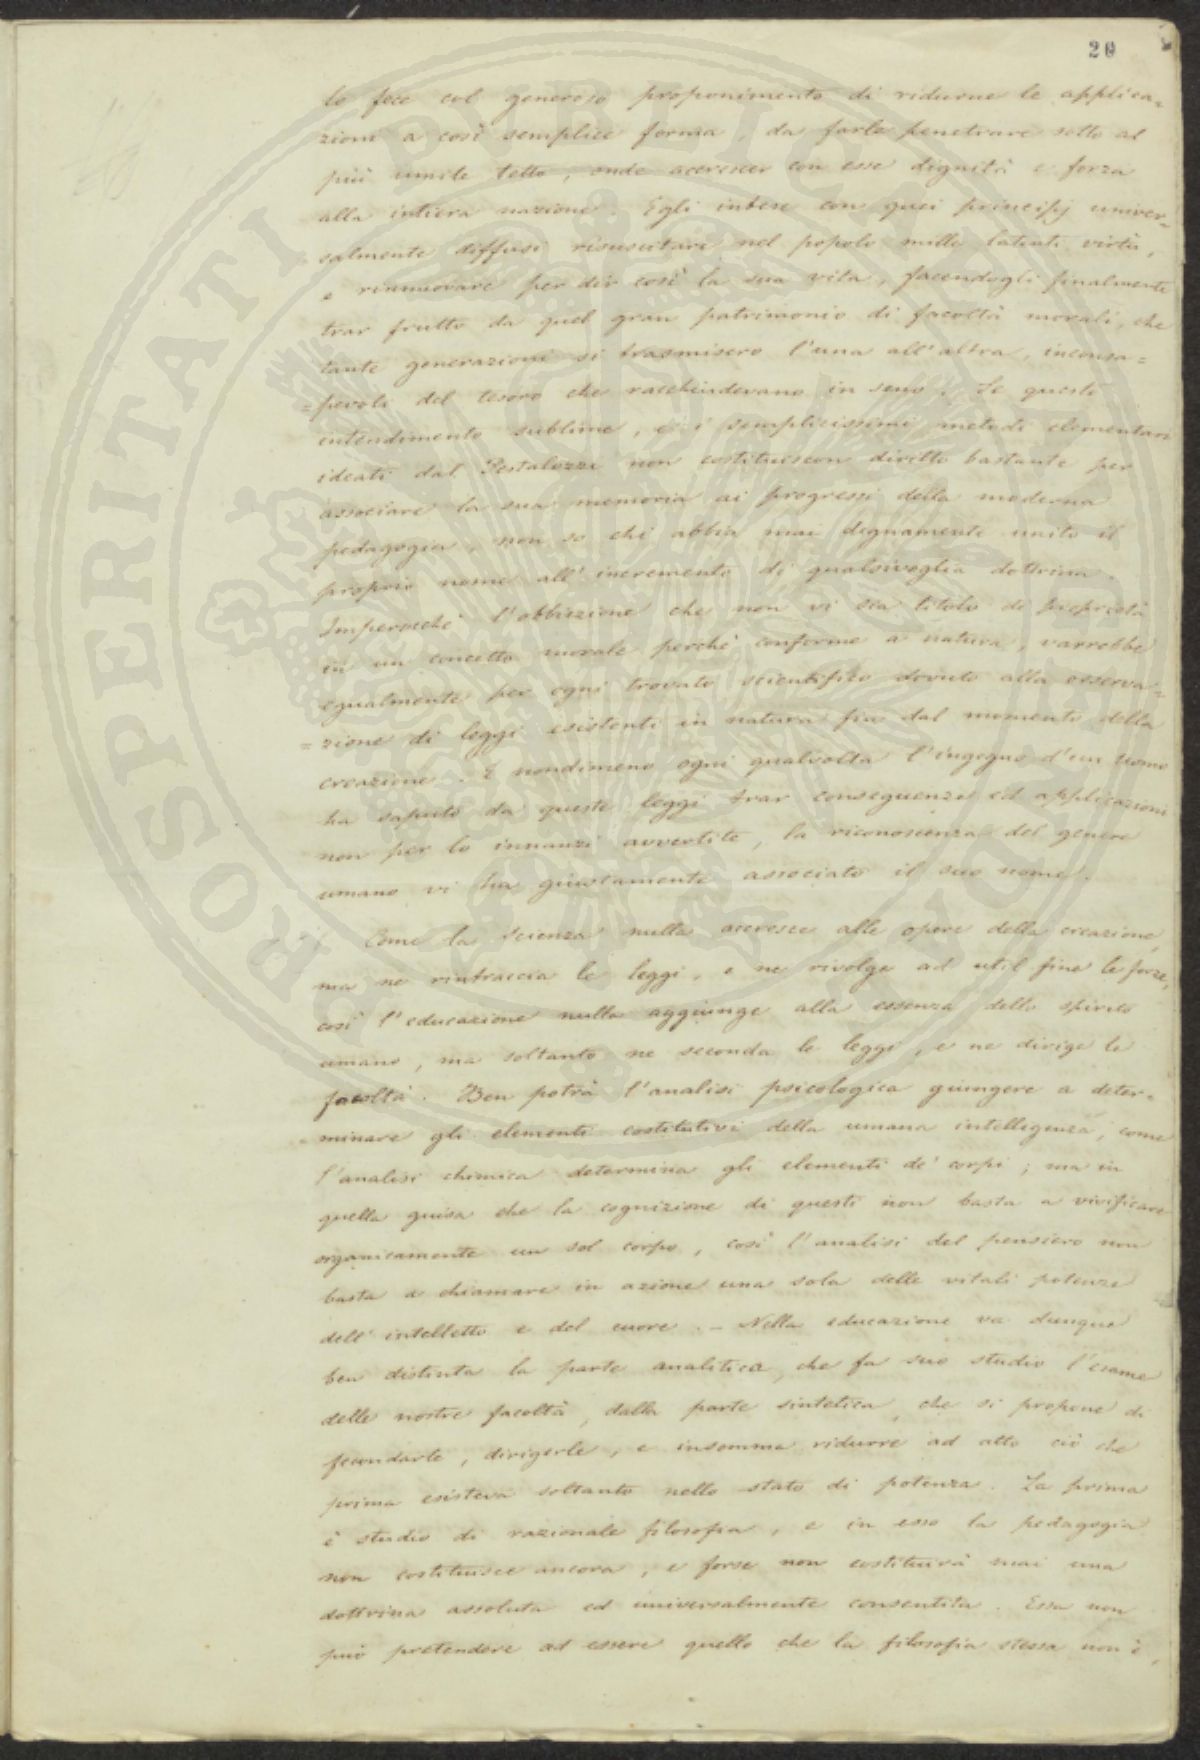 20
lo fece col generoso proponimento di ridurne le applica=
zioni a così semplice forma, da farle penetrare sotto al
più umile tetto, onde accrescer con esse dignità e forza
alla intiera nazione. Egli intese con quei principj univer=
=salmente diffusi risuscitare nel popolo mille latenti virtù,
e rinnuovare per dir così la sua vita, facendogli finalmente
trar frutto da quel gran patrimonio di facoltà morali, che
tante generazioni si trasmisero l'una all'altra, inconsa=
=pevoli del tesoro che racchiudevano in seno. Se questo
intendimento sublime, e i semplicissimi metodi elementari
ideati dal Pestalozzi non costituiscon diritto bastante per
associare la sua memoria ai progressi della moderna
pedagogia, non so chi abbia mai degnamente unito il
proprio nome all'incremento di qualsivoglia dottrina.
Imperocchè l'obbiezione che non vi sia titolo di proprietà
in un concetto morale perchè conforme a natura, varrebbe
egualmente per ogni trovato scientifico dovuto alla osserva=
=zione di leggi esistenti in natura fin dal momento della
creazione. E nondimeno ogni qualvolta l'ingegno d'un uomo
ha saputo da queste leggi trar conseguenze ed applicazioni
non per lo innanzi avvertite, la riconoscenza del genere
umano vi ha giustamente associato il suo nome.
Come la scienza nulla accresce alle opere della creazione,
ma ne rintraccia le leggi, e ne rivolge ad util fine le forze,
così l'educazione nulla aggiunge alla essenza dello spirito
umano, ma soltanto ne seconda le leggi, e ne dirige le
facoltà. Ben potrà l'analisi psicologica giungere a deter=
=minare gli elementi costitutivi della umana intelligenza, come
l'analisi chimica determina gli elementi de' corpi; ma in
quella guisa che la cognizione di questi non basta a vivificare
organicamente un sol corpo, così l'analisi del pensiero non
basta a chiamare in azione una sola delle vitali potenze
dell'intelletto e del cuore. – Nella educazione va dunque
ben distinta la parte analitica, che fa suo studio l'esame
delle nostre facoltà, dalla parte sintetica, che si propone di
fecondarle, dirigerle, e insomma ridurre ad atto ciò che
prima esisteva soltanto nello stato di potenza. La prima
è studio di razionale filosofia, e in esso la pedagogia
non costituisce ancora, e forse non costituirà mai una
dottrina assoluta ed universalmente consentita. Essa non
può pretendere ad essere quello che la filosofia stessa non è,
PROSPERITATI PUBLICAE